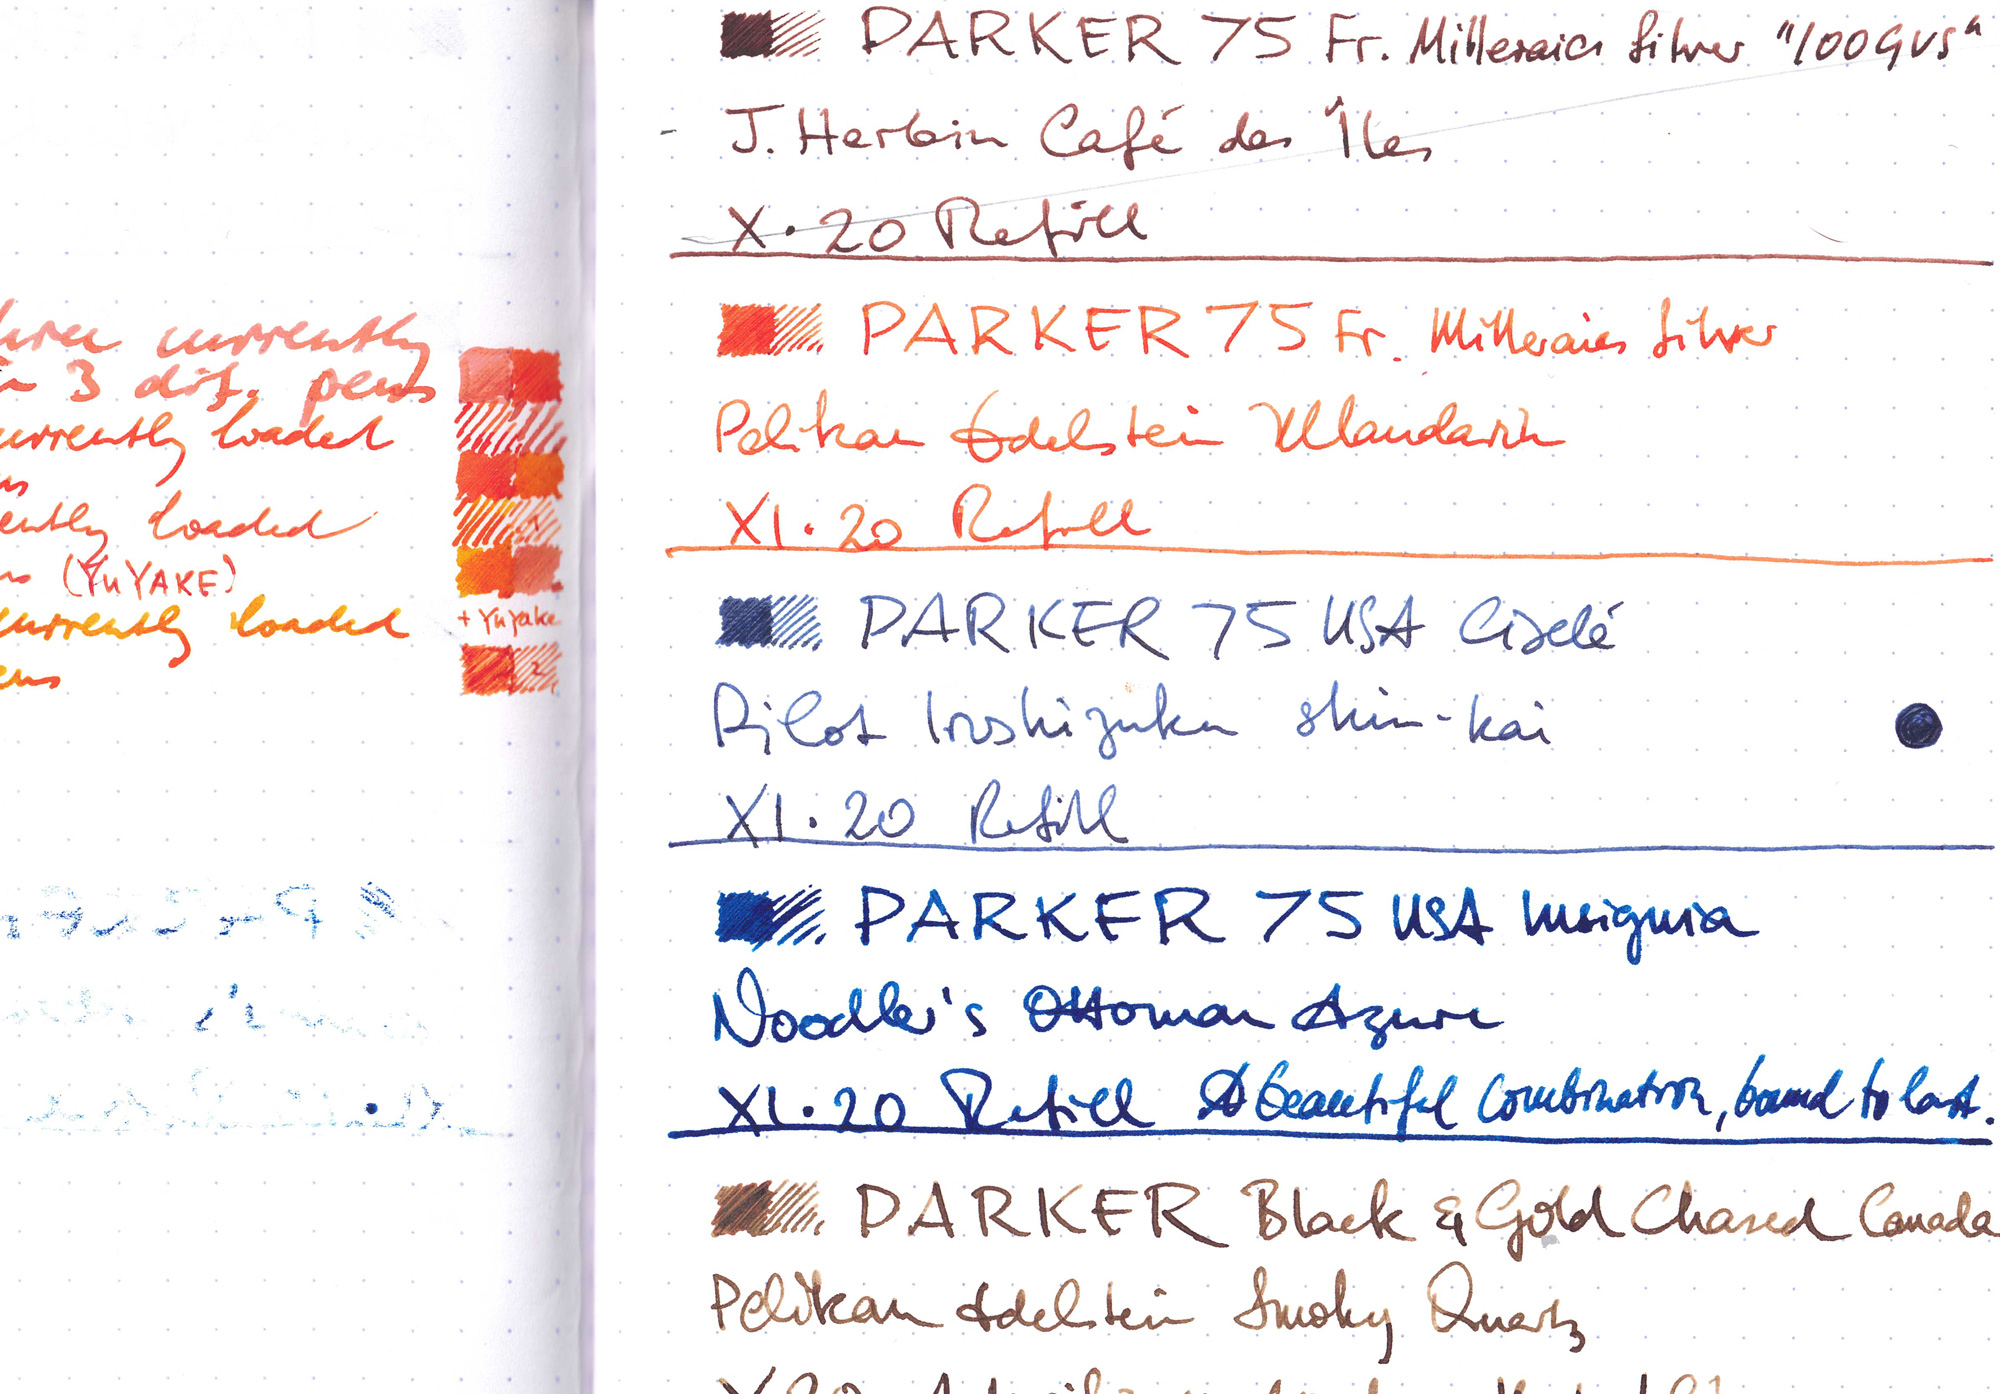 currently
3 dif. pens
currently loaded
loaded
(YuYAKE)
+ Yuyake
currently loaded
2
PARKER 75 Fr. Milleraies Silver "100GVS"
J. Herbin Café des Îles
X. 20 Refill
PARKER 75 Fr. Milleraies Silver
Pelikan Edelstein Mandarin
XI. 20 Refill
PARKER 75 USA Ciselé
Pilot Iroshizuku shin-kai
XI. 20 Refill
PARKER 75 USA Insignia
Noodler's Ottoman Azure
XI. 20 Refill A beautiful combination, bound to last.
PARKER Black & Gold Chased Canada
Pelikan Edelstein Smoky Quartz